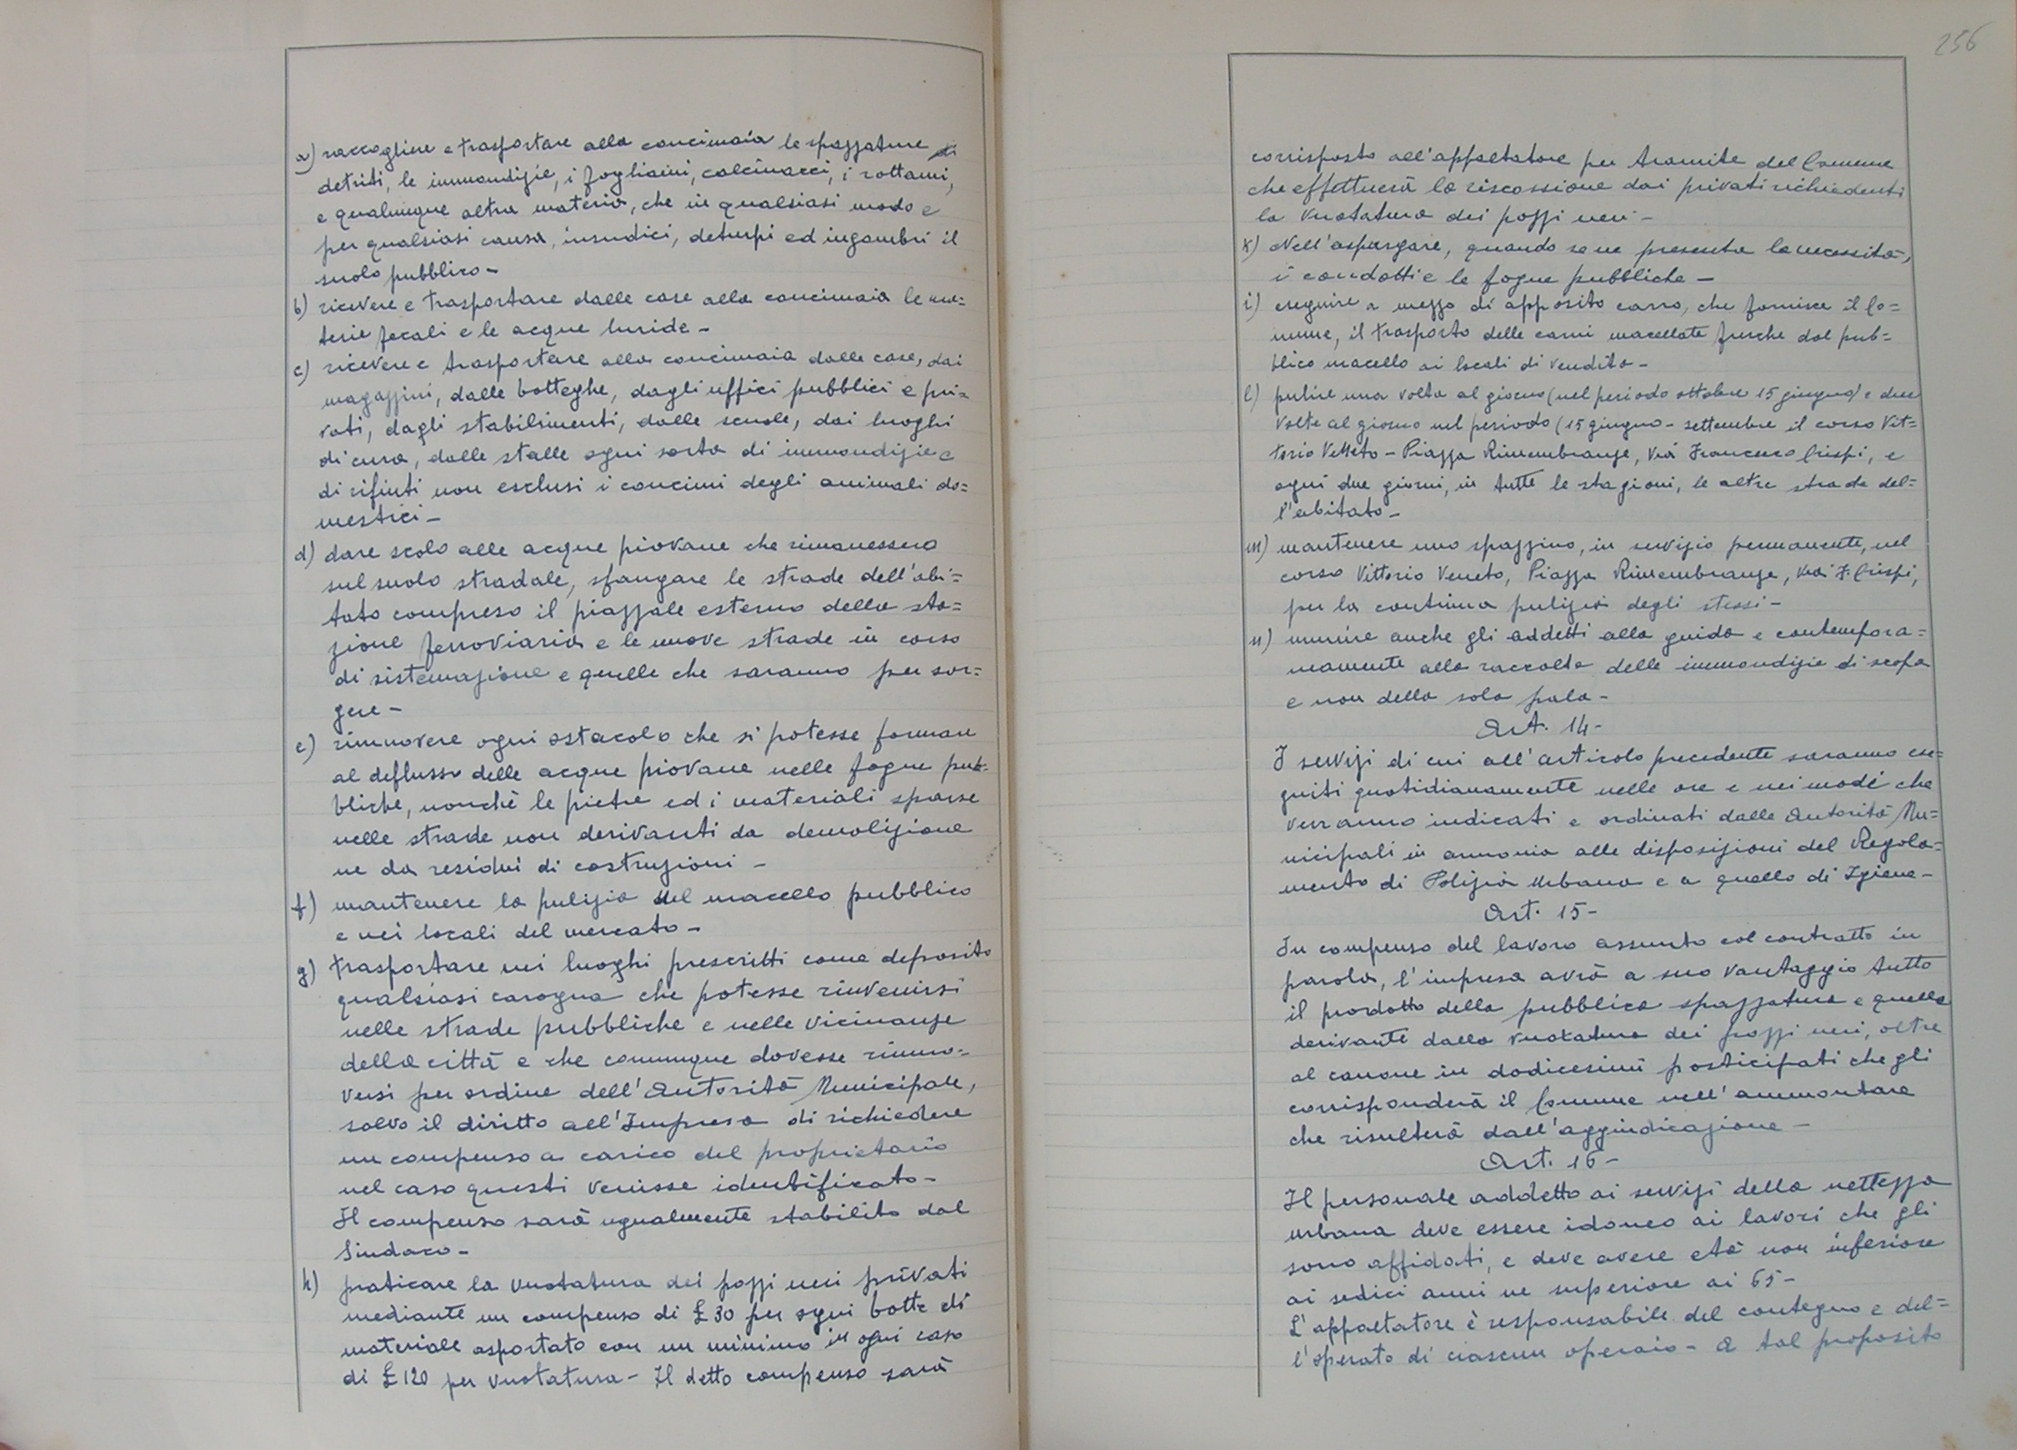 a) raccogliere e trasportare alla concimaia le spazzature
detriti, le immondizie, i fogliaini, calcinacci, i rottami,
e qualunque altra materia, che in qualsiasi modo e
per qualsiasi causa, insudici, deturpi ed ingombri il
suolo pubblico -
b) ricevere e trasportare dalle case alla concimaia le ma=
terie fecali e le acque luride -
c) ricevere e trasportare alla concimaia dalle case, dai
magazzini, dalle botteghe, dagli uffici pubblici e pri=
vati, dagli stabilimenti, dalle scuole, dai luoghi
di cura, dalle stalle ogni sorta di immondizie e
di rifiuti non esclusi i concimi degli animali do=
mestici -
d) dare scolo alle acque piovane che rimanessero
sul suolo stradale, sfangare le strade dell'abi=
tato compreso il piazzale esterno della sta=
zione ferroviaria e le nuove strade in corso
di sistemazione e quelle che saranno per sor=
gere -
e) rimuovere ogni ostacolo che si potesse formare
al deflusso delle acque piovane nelle fogne pub=
bliche, nonchè le pietre ed i materiali sparse
nelle strade non derivanti da demolizione
ne da residui di costruzioni -
f) mantenere la pulizia del macello pubblico
e nei locali del mercato -
g) trasportare nei luoghi prescritti come deposito
qualsiasi carogna che potesse rinvenirsi
nelle strade pubbliche e nelle vicinanze
della città e che comunque dovesse rimuo=
versi per ordine dell'Autorità Municipale,
salvo il diritto all'Impresa di richiedere
un compenso a carico del proprietario
nel caso questi venisse identificato -
Il compenso sarà ugualmente stabilito dal
Sindaco -
h) praticare la vuotatura dei pozzi neri privati
mediante un compenso di £ 30 per ogni botte di
materiale asportato con un minimo in ogni caso
di £ 120 per vuotatura - Il detto compenso sarà
256
corrisposto all'appaltatore per tramite del Comune
che effettuerà la riscossione dai privati richiedenti
la vuotatura dei pozzi neri -
Nell'aspurgare, quando se ne presenta la necessità,
i condotti e le fogne pubbliche -
i) eseguire a mezzo di apposito carro, che fornisce il Co=
mune, il trasporto delle carni macellate fresche dal pub=
blico macello ai locali di vendita -
l) pulire una volta al giorno (nel periodo ottobre 15 giugno) e due
volte al giorno nel periodo (15 giugno - settembre il corso Vit=
torio Veneto - Piazza Rimembranze, Via Francesco Crispi, e
ogni due giorni, in tutte le stagioni, le altre strade del=
l'abitato -
m) mantenere uno spazzino, in servizio permanente, nel
corso Vittorio Veneto, Piazza Rimembranze, Via F. Crispi,
per la continua pulizia degli stessi -
n) munire anche gli addetti alla guida e contempora=
neamente alla raccolta delle immondizie di scopa
e non della sola pala -
Art. 14 -
I servizi di cui all'articolo precedente saranno ese=
guiti quotidianamente nelle ore e nei modi che
verranno indicati e ordinati dalle Autorità Mu=
nicipali in armonia alle disposizioni del Regola=
mento di Polizia Urbana e a quello di Igiene -
Art. 15 -
In compenso del lavoro assunto col contratto in
parola, l'impresa avrà a suo vantaggio tutto
il prodotto della pubblica spazzatura e quello
derivante dalla vuotatura dei pozzi neri, oltre
al canone in dodicesimi posticipati che gli
corrisponderà il Comune nell'ammontare
che risulterà dall'aggiudicazione -
Art. 16 -
Il personale addetto ai servizi della nettezza
urbana deve essere idoneo ai lavori che gli
sono affidati, e deve avere età non inferiore
ai sedici anni ne superiore ai 65 -
L'appaltatore è responsabile del contegno e del=
l'operato di ciascun operaio - A tal proposito